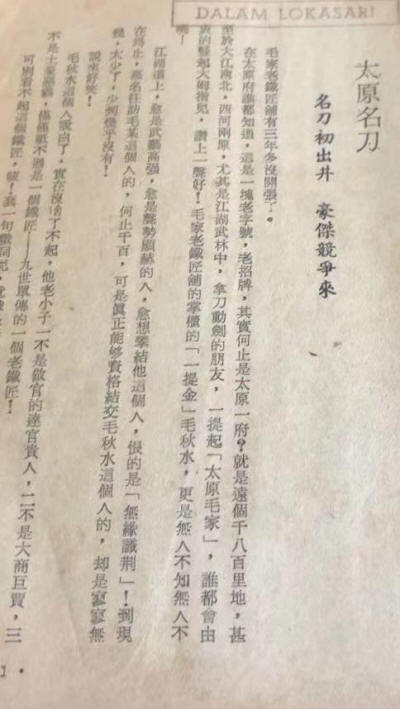 DALAM LOKASARI
太原名刀
名刀初出井　豪傑競爭來
毛家老鐵匠舖有三年多沒開張了。
在太原府誰都知道，這是一塊老字號，老招牌，其實何止是太原一府？就是遠個千八百里地，甚
至於大江南北，西河兩原，尤其是江湖武林中，拿刀動劍的朋友，一提起「太原毛家」，誰都會由
衷的豎起大姆指兒，讚上一聲好！毛家老鐵匠舖的掌櫃的「一提金」毛秋水，更是無人不知無人不
曉
江湖道上，愈是武藝高强，愈是聲勢顯赫的人，愈想攀結他這個人，恨的是「無緣識荆」！到現
在為止，慕名往訪毛某這個人的，何止千百，可是眞正能够資格結交毛秋水這個人的，却是寥寥無
幾，太少了，少到幾乎沒有！
說來好笑！
毛秋水這個人說白了，實在沒啥了不起，他老小子一不是做官的達官貴人，二不是大商巨賈，三
不是土豪惡霸，僅僅祇不過是一個鐵匠——九世單傳的一個老鐵匠！
可別看不起這個鐵匠，一句
1